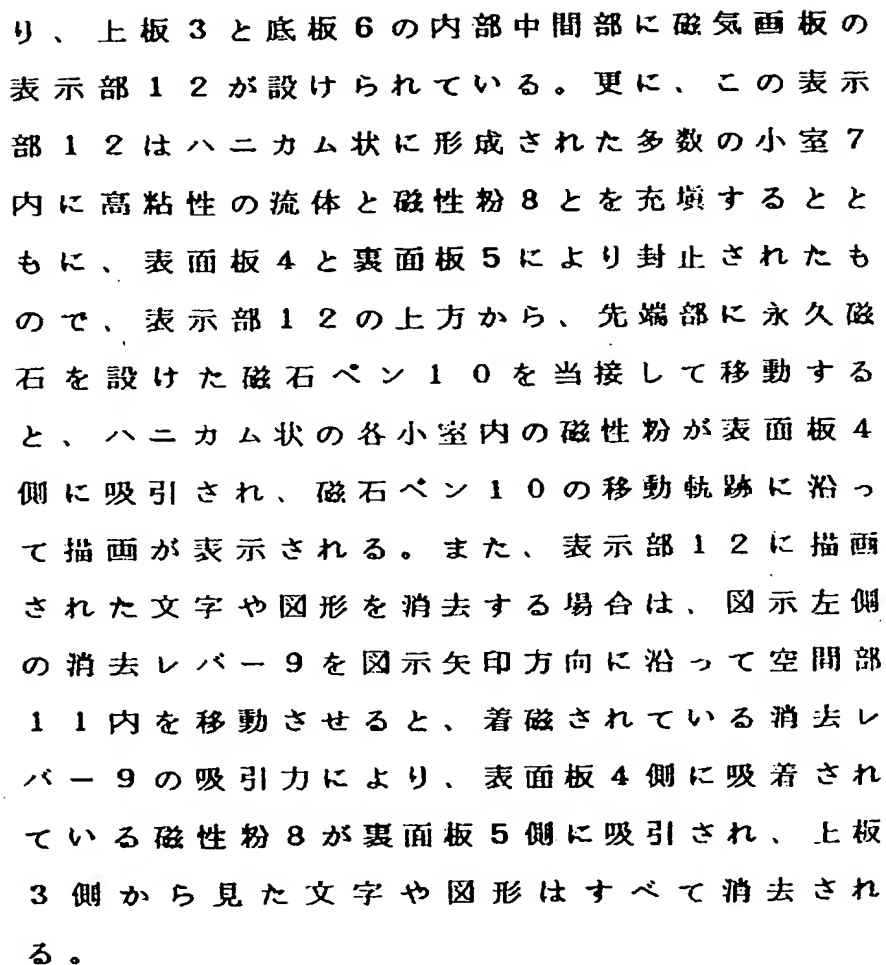 り、上板３と底板６の内部中間部に磁気画板の
表示部１２が設けられている。更に、この表示
部１２はハニカム状に形成された多数の小室７
内に高粘性の流体と磁性粉８とを充塡するとと
もに、表面板４と裏面板５により封止されたも
ので、表示部１２の上方から、先端部に永久磁
石を設けた磁石ペン１０を当接して移動する
と、ハニカム状の各小室内の磁性粉が表面板４
側に吸引され、磁石ペン１０の移動軌跡に沿っ
て描画が表示される。また、表示部１２に描画
された文字や図形を消去する場合は、図示左側
の消去レバー９を図示矢印方向に沿って空間部
１１内を移動させると、着磁されている消去レ
バー９の吸引力により、表面板４側に吸着され
ている磁性粉８が裏面板５側に吸引され、上板
３側から見た文字や図形はすべて消去され
る。